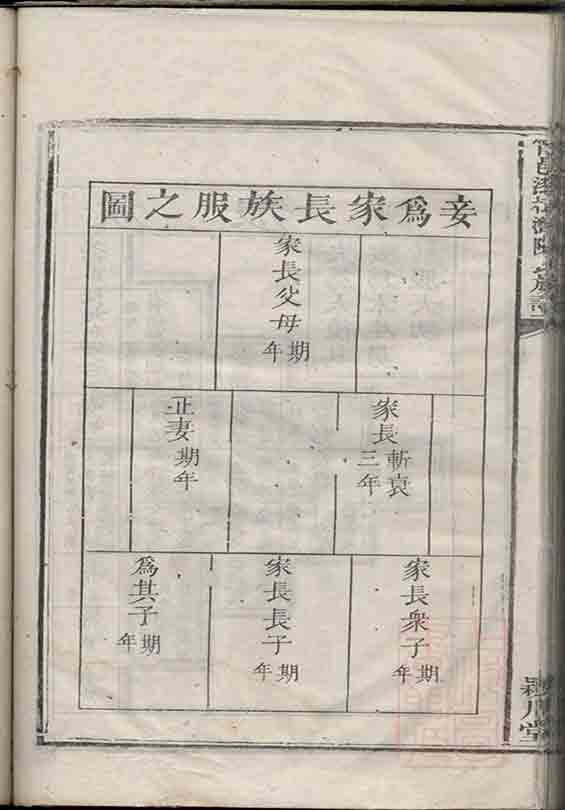 妾爲家長族服之圖
家長父母
期年
家長
斬衰
三年
正妻
期年
家長衆子
期年
家長長子
期年
爲其子
期年
潁川堂